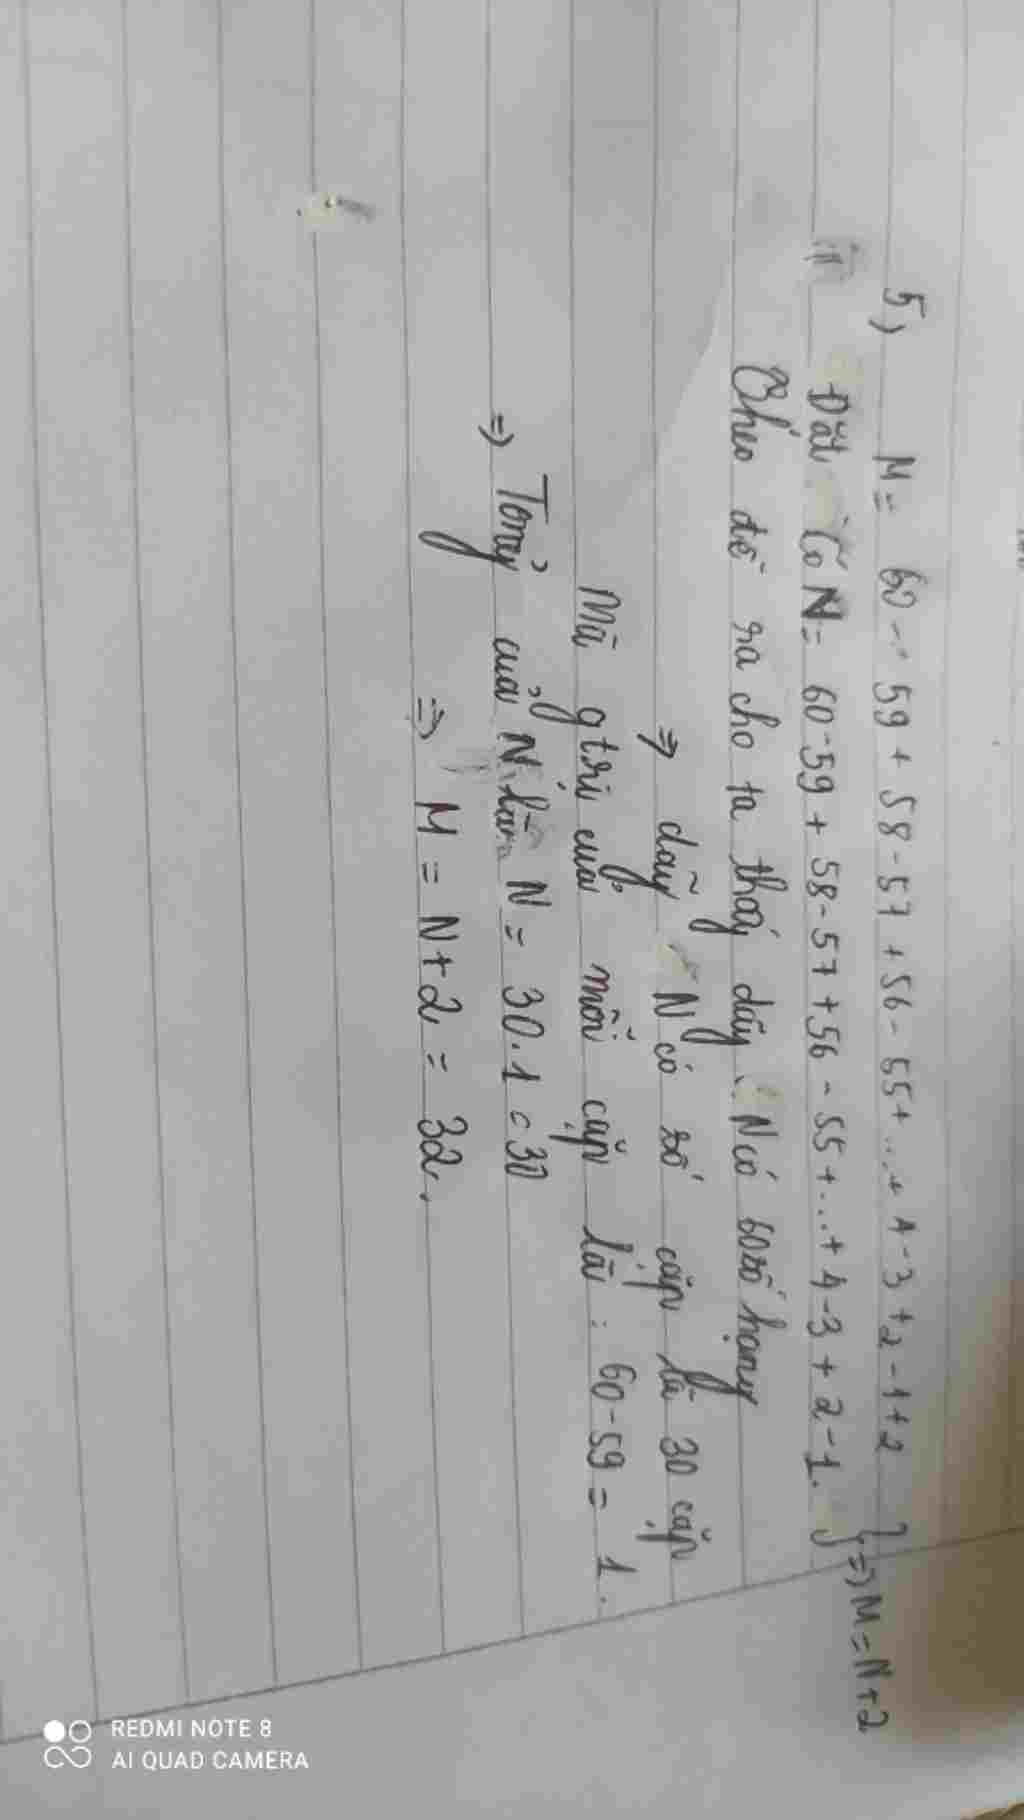 5, M = 60 - 59 + 58 - 57 + 56 - 55 + ... + 4 - 3 + 2 - 1 + 2
Đặt Có N = 60 - 59 + 58 - 57 + 56 - 55 + ... + 4 - 3 + 2 - 1. } => M = N + 2
Theo đề ra cho ta thấy dãy N có 60 số hạng
=> dãy N có số cặp là 30 cặp
Mà gtrị của mỗi cặp là : 60 - 59 = 1.
=> Tổng của N là N = 30.1 = 30
=> M = N + 2 = 32.
REDMI NOTE 8
AI QUAD CAMERA